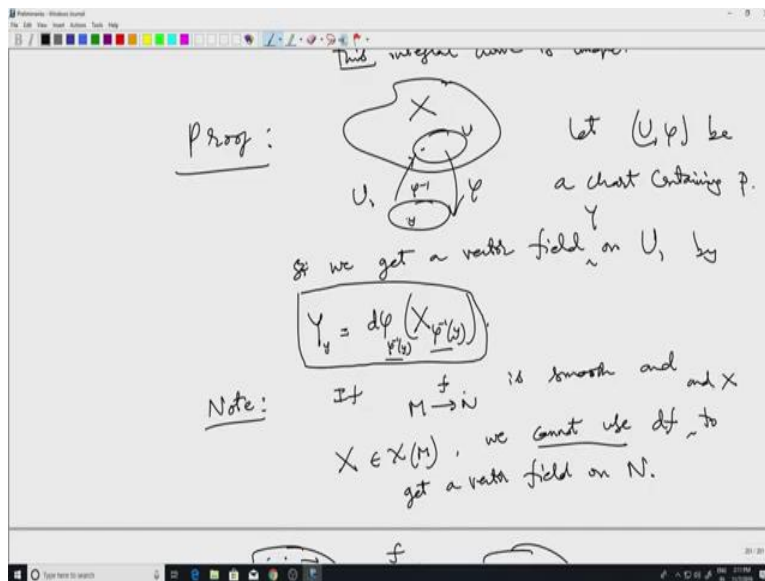 Preliminaries - Windows Journal
File Edit View Insert Actions Tools Help
This integral curve is unique.
Proof :
X
U
U₁ φ⁻¹ φ
y
Let (U, φ) be
a chart containing p.
So we get a vector field Y on U₁ by
Y_y = dφ_{φ⁻¹(y)} (X_{φ⁻¹(y)}).
Note: If M →^f N is smooth and and X
X ∈ X(M), we cannot use df to
get a vector field on N.
f
20 / 20
Type here to search
ENG 2:11 PM